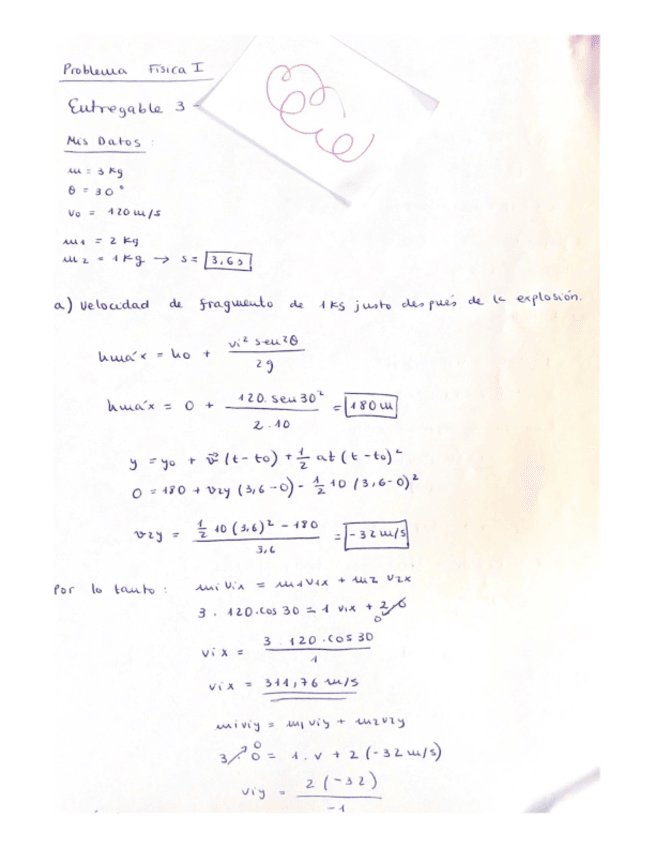 Problema Física I
Entregable 3 -
Mis Datos :
m = 3 Kg
θ = 30°
v₀ = 120 m/s
m₁ = 2 Kg
m₂ = 1 Kg → s = 3,6 s
a) Velocidad de fragmento de 1 KG justo después de la explosión.
hmáx = h₀ + vi² sen²θ / 2g
hmáx = 0 + 120. sen 30² / 2 . 10 = 180 m
y = y₀ + v⃗ (t - t₀) + 1/2 at (t - t₀)²
0 = 180 + v₂y (3,6 - 0) - 1/2 10 (3,6 - 0)²
v₂y = 1/2 10 (3,6)² - 180 / 3,6 = -32 m/s
Por lo tanto : mi vix = m₁v₁x + m₂ v₂x
3 . 120 . cos 30 = 1 vix + 2 . 0 0
vix = 3 . 120 . cos 30 / 1
vix = 311,76 m/s
mi viy = m₁ viy + m₂v₂y
3 . 0 0 = 1 . v + 2 (-32 m/s)
viy = 2 (-32) / -1